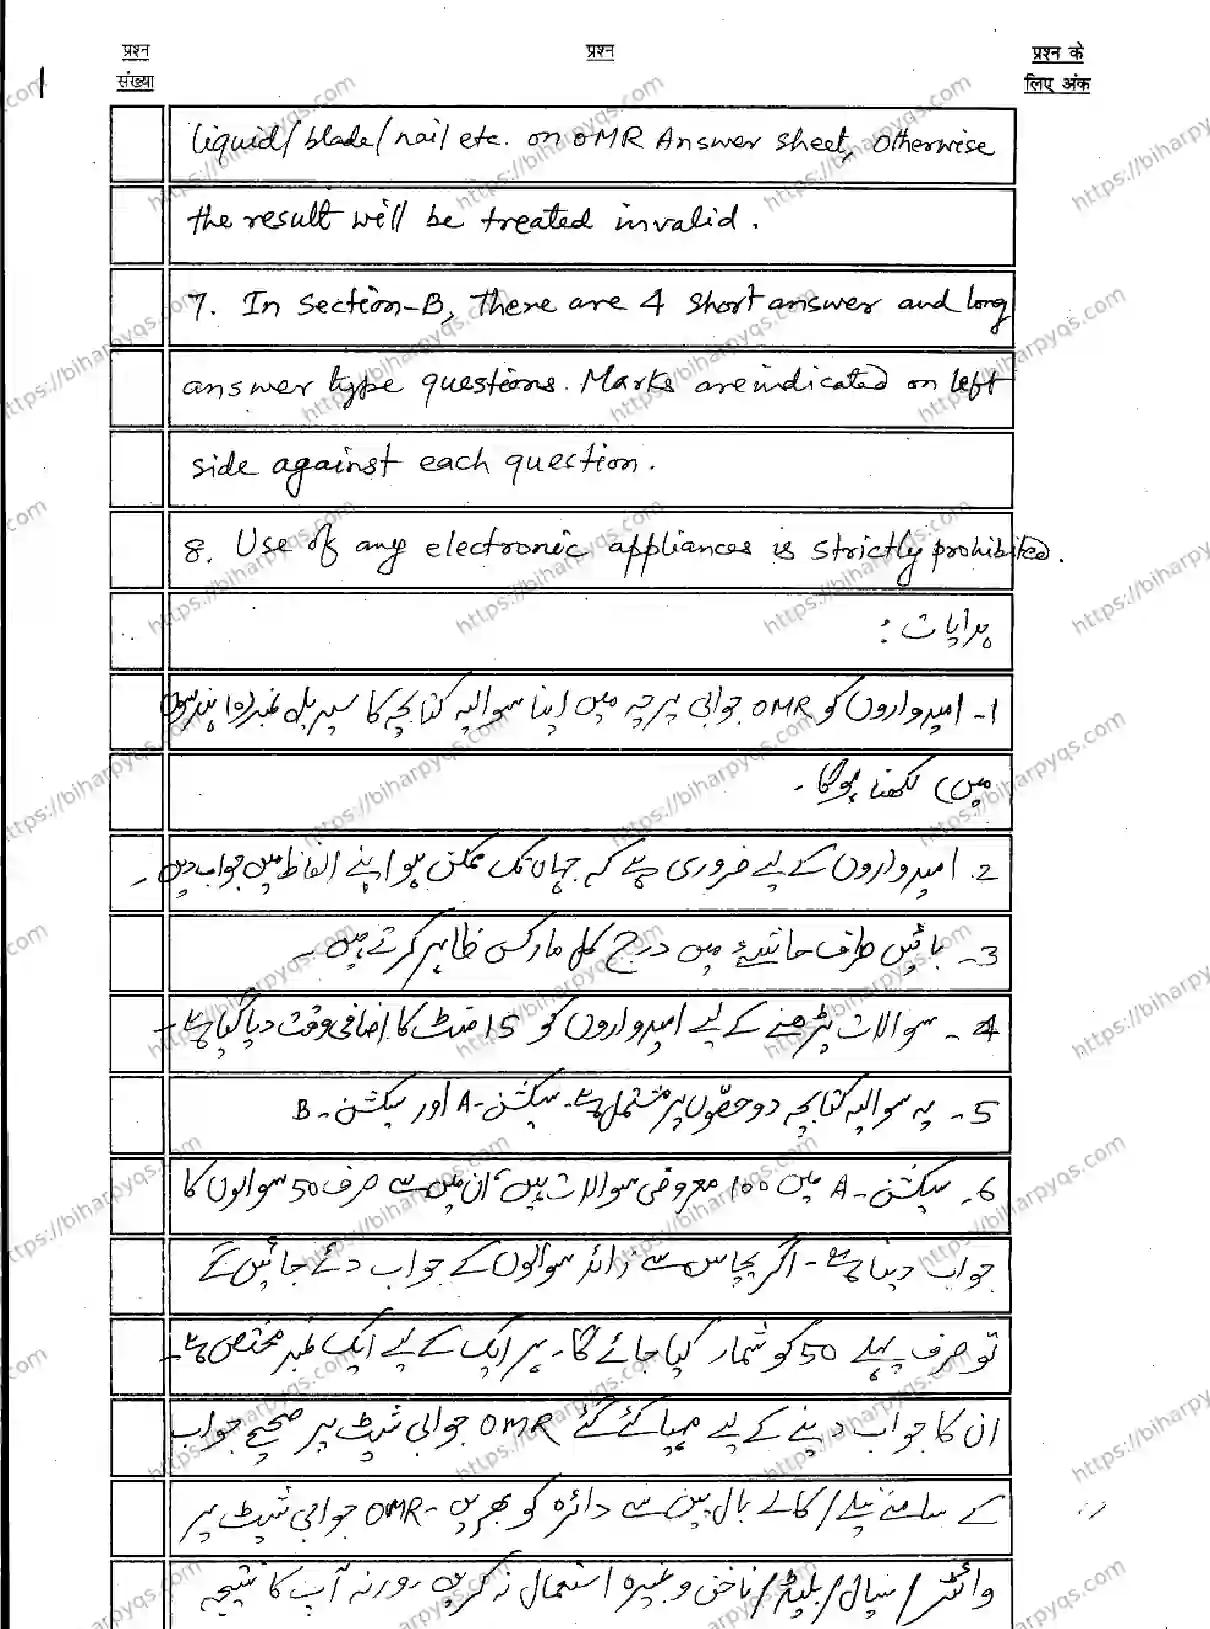 प्रश्न संख्या
प्रश्न
प्रश्न के लिए अंक
liquid/blade/nail etc. on OMR Answer sheet, otherwise
the result will be treated invalid.
7. In section-B, There are 4 short answer and long
answer type questions. Marks are indicated on left
side against each question.
8. Use of any electronic appliances is strictly prohibited.
ہدایات :
1- امیدواروں کو OMR جوابی پرچہ میں اپنا سوالیہ کتابچہ کا سیریل نمبر (10 ہندسوں
میں) لکھنا ہوگا۔
2. امیدواروں کے لیے ضروری ہے کہ جہاں تک ممکن ہو اپنے الفاظ میں جواب دیں۔
3- بائیں طرف حاشیے میں درج کل مارکس ظاہر کرتے ہیں۔
4- سوالات پڑھنے کے لیے امیدواروں کو 15 منٹ کا اضافی وقت دیا گیا ہے۔
5- یہ سوالیہ کتابچہ دو حصّوں پر مشتمل ہے۔ سیکشن-A اور سیکشن-B
6- سیکشن-A میں 100 معروضی سوالات ہیں، ان میں سے صرف 50 سوالوں کا
جواب دینا ہے۔ اگر پچاس سے زائد سوالوں کے جواب دئے جائیں گے
تو صرف پہلے 50 کو شمار کیا جائے گا۔ ہر ایک کے لیے ایک نمبر مختص ہے۔
ان کا جواب دینے کے لیے مہیا کئے گئے OMR جوابی شیٹ پر صحیح جواب
کے سامنے نیلے/کالے بال پین سے دائرہ کو بھریں۔ OMR جوابی شیٹ پر
وائٹنر/سیال/بلیڈ/ناخن وغیرہ استعمال نہ کریں ورنہ آپ کا نتیجہ
https://biharpyqs.com